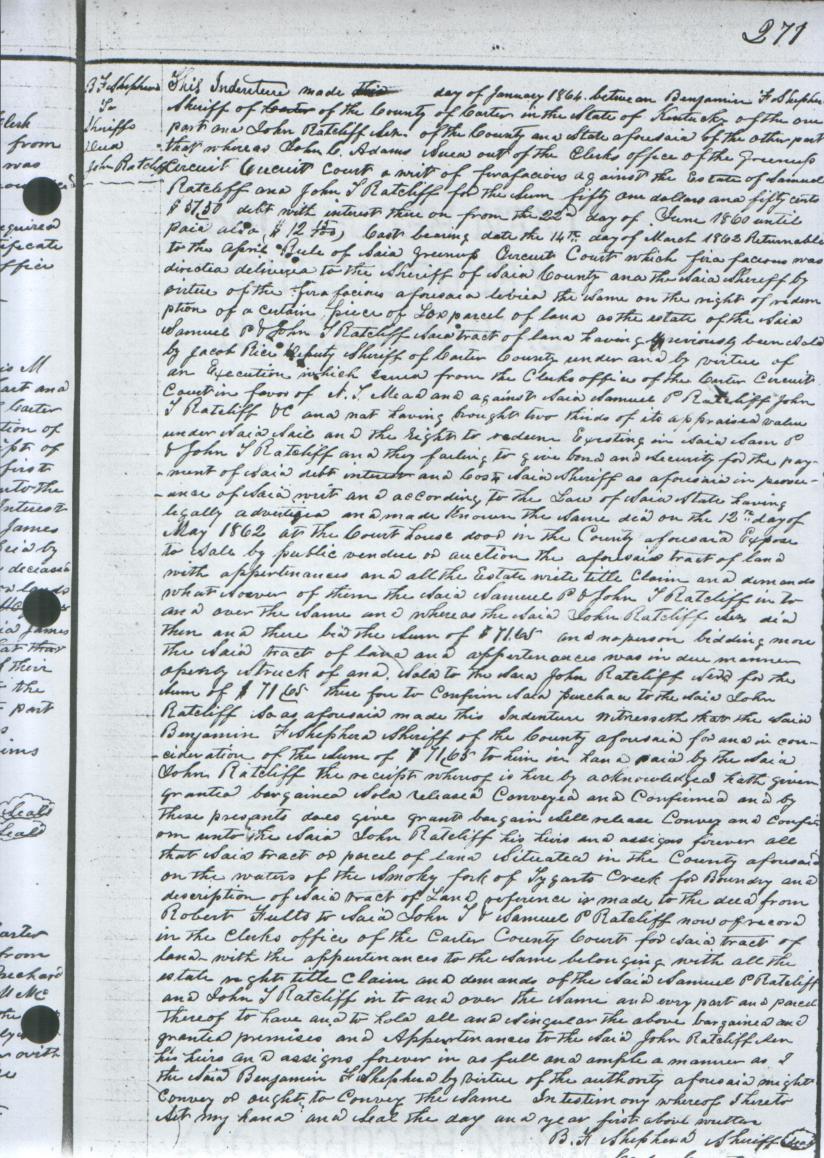 271
B F Shepherd
To
Sheriffs
Deed
John Ratcliff
This Indenture made this day of January 1864 between Benjamin F Shepherd
Sheriff of Carter of the County of Carter in the State of Kentucky of the one
part and John Ratcliff Senr of the County and State aforesaid of the other part
that whereas John C. Adams Sued out of the Clerks office of the Greenup
Circuit Circuit Court a writ of firafacious against the Estate of Samuel
Ratcliff and John T Ratcliff for the Sum fifty one dollars and fifty cents
$51.50 debt with interest there on from the 22nd day of June 1860 until
paid also $12 Cost bearing date the 14th day of March 1862 Returnable
to the April Rule of Said Greenup Circuit Court which fira facious was
directed delivered to the Sheriff of Said County and the Said Sheriff by
virtue of the firafacious aforesaid levied the Same on the right of redem
ption of a certain piece of or parcel of land as the estate of the Said
Samuel P & John T Ratcliff Said tract of land having previously been Sold
by Jacob Rice Deputy Sheriff of Carter County under and by virtue of
an Execution which issued from the Clerks office of the Carter Circuit
Court in favor of N. T. Mead and against Said Samuel P Ratcliff John
T Ratcliff &C and not having brought two thirds of its appraised value
under Said Sail and the Right to redeem Egxisting in Said Sam P
& John T Ratcliff and they failing to give bond and security for the pay-
-ment of Said debt interest and Cost Said Sheriff as aforesaid in persu-
-ance of Said writ and according to the Law of Said State having
legally advertised and made Known the Same did on the 12th day of
May 1862 at the Court house door in the County aforesaid Expose
to Sale by public vendue or auction the aforesaid tract of land
with appertinances and all the Estate write title Claim and demands
what soever of them the Said Samuel P & John T Ratcliff in to
and over the Same and whereas the Said John Ratcliff Sen did
then and there bid the Sum of $71.65 and no person bidding more
the Said tract of land and appertenances was in due manner
openly Struck of and Sold to the Said John Ratcliff Send for the
Sum of $71.65 there fore to Confirm Said purchace to the Said John
Ratcliff So as aforesaid made this Indenture Witnesseth that the Said
Benjamin F Shepherd Sheriff of the County aforesaid for and in con-
-cideration of the Sum of $71.65 to him in hand paid by the Said
John Ratcliff the receipt whereof is here by acknowledged hath given
granted bargained Sold released Conveyed and Confirmed and by
these presants does give grant bargain Sell release Convey and Confir
om unto the Said John Ratcliff his heirs and assigns forever all
that Said tract or parcel of land Situated in the County aforesaid
on the waters of the Smoky fork of Tygarts Creek for Boundry and
description of Said tract of Land reference is made to the deed from
Robert Fults to Said John T & Samuel P Ratcliff now of record
in the Clerks office of the Carter County Court for Said tract of
land with the appertenances to the Same belonging with all the
estate right title Claim and demands of the Said Samuel P Ratcliff
and John T Ratcliff in to and over the Same and evry part and parcel
thereof to have and to hold all and Singular the above bargained and
granted premises and Appertenances to the Said John Ratcliff Sen
his heirs and assigns forever in as full and ample a manner as I
the Said Benjamin F Shepherd by virtue of the authority aforesaid might
Convey or ought to Convey the Same In testimony whereof I hereto
Set my hand and Seal the day and year first above written
B. F. Shepherd Sheriff Seal